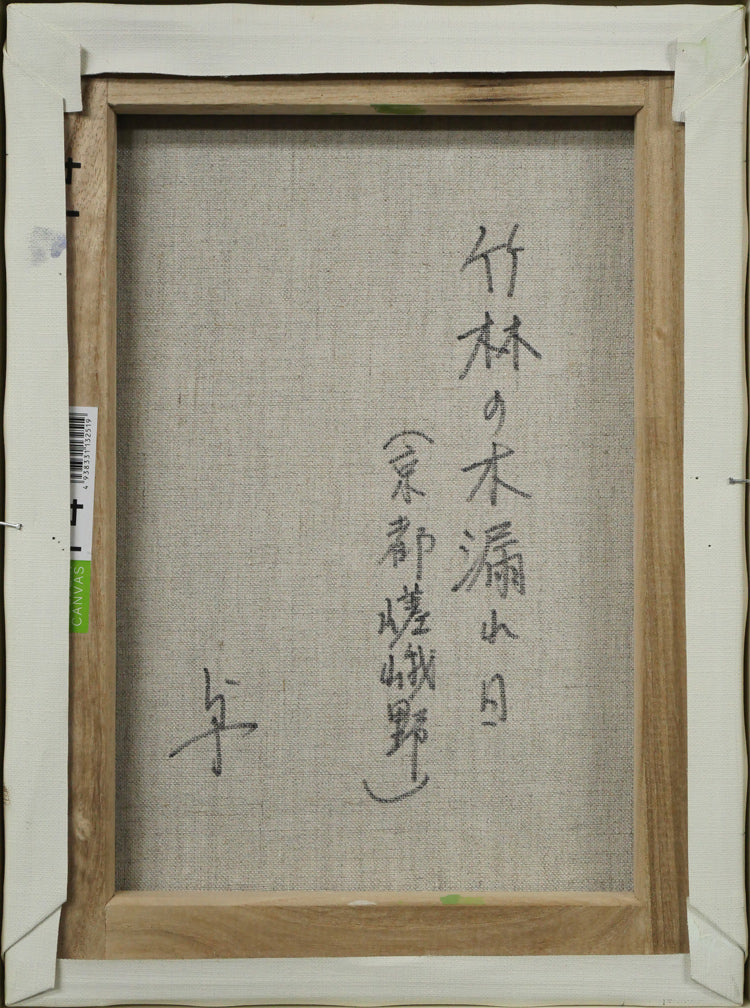 竹林の木漏れ日
(京都嵯峨野)
卓
4 938331 132519
CANVAS